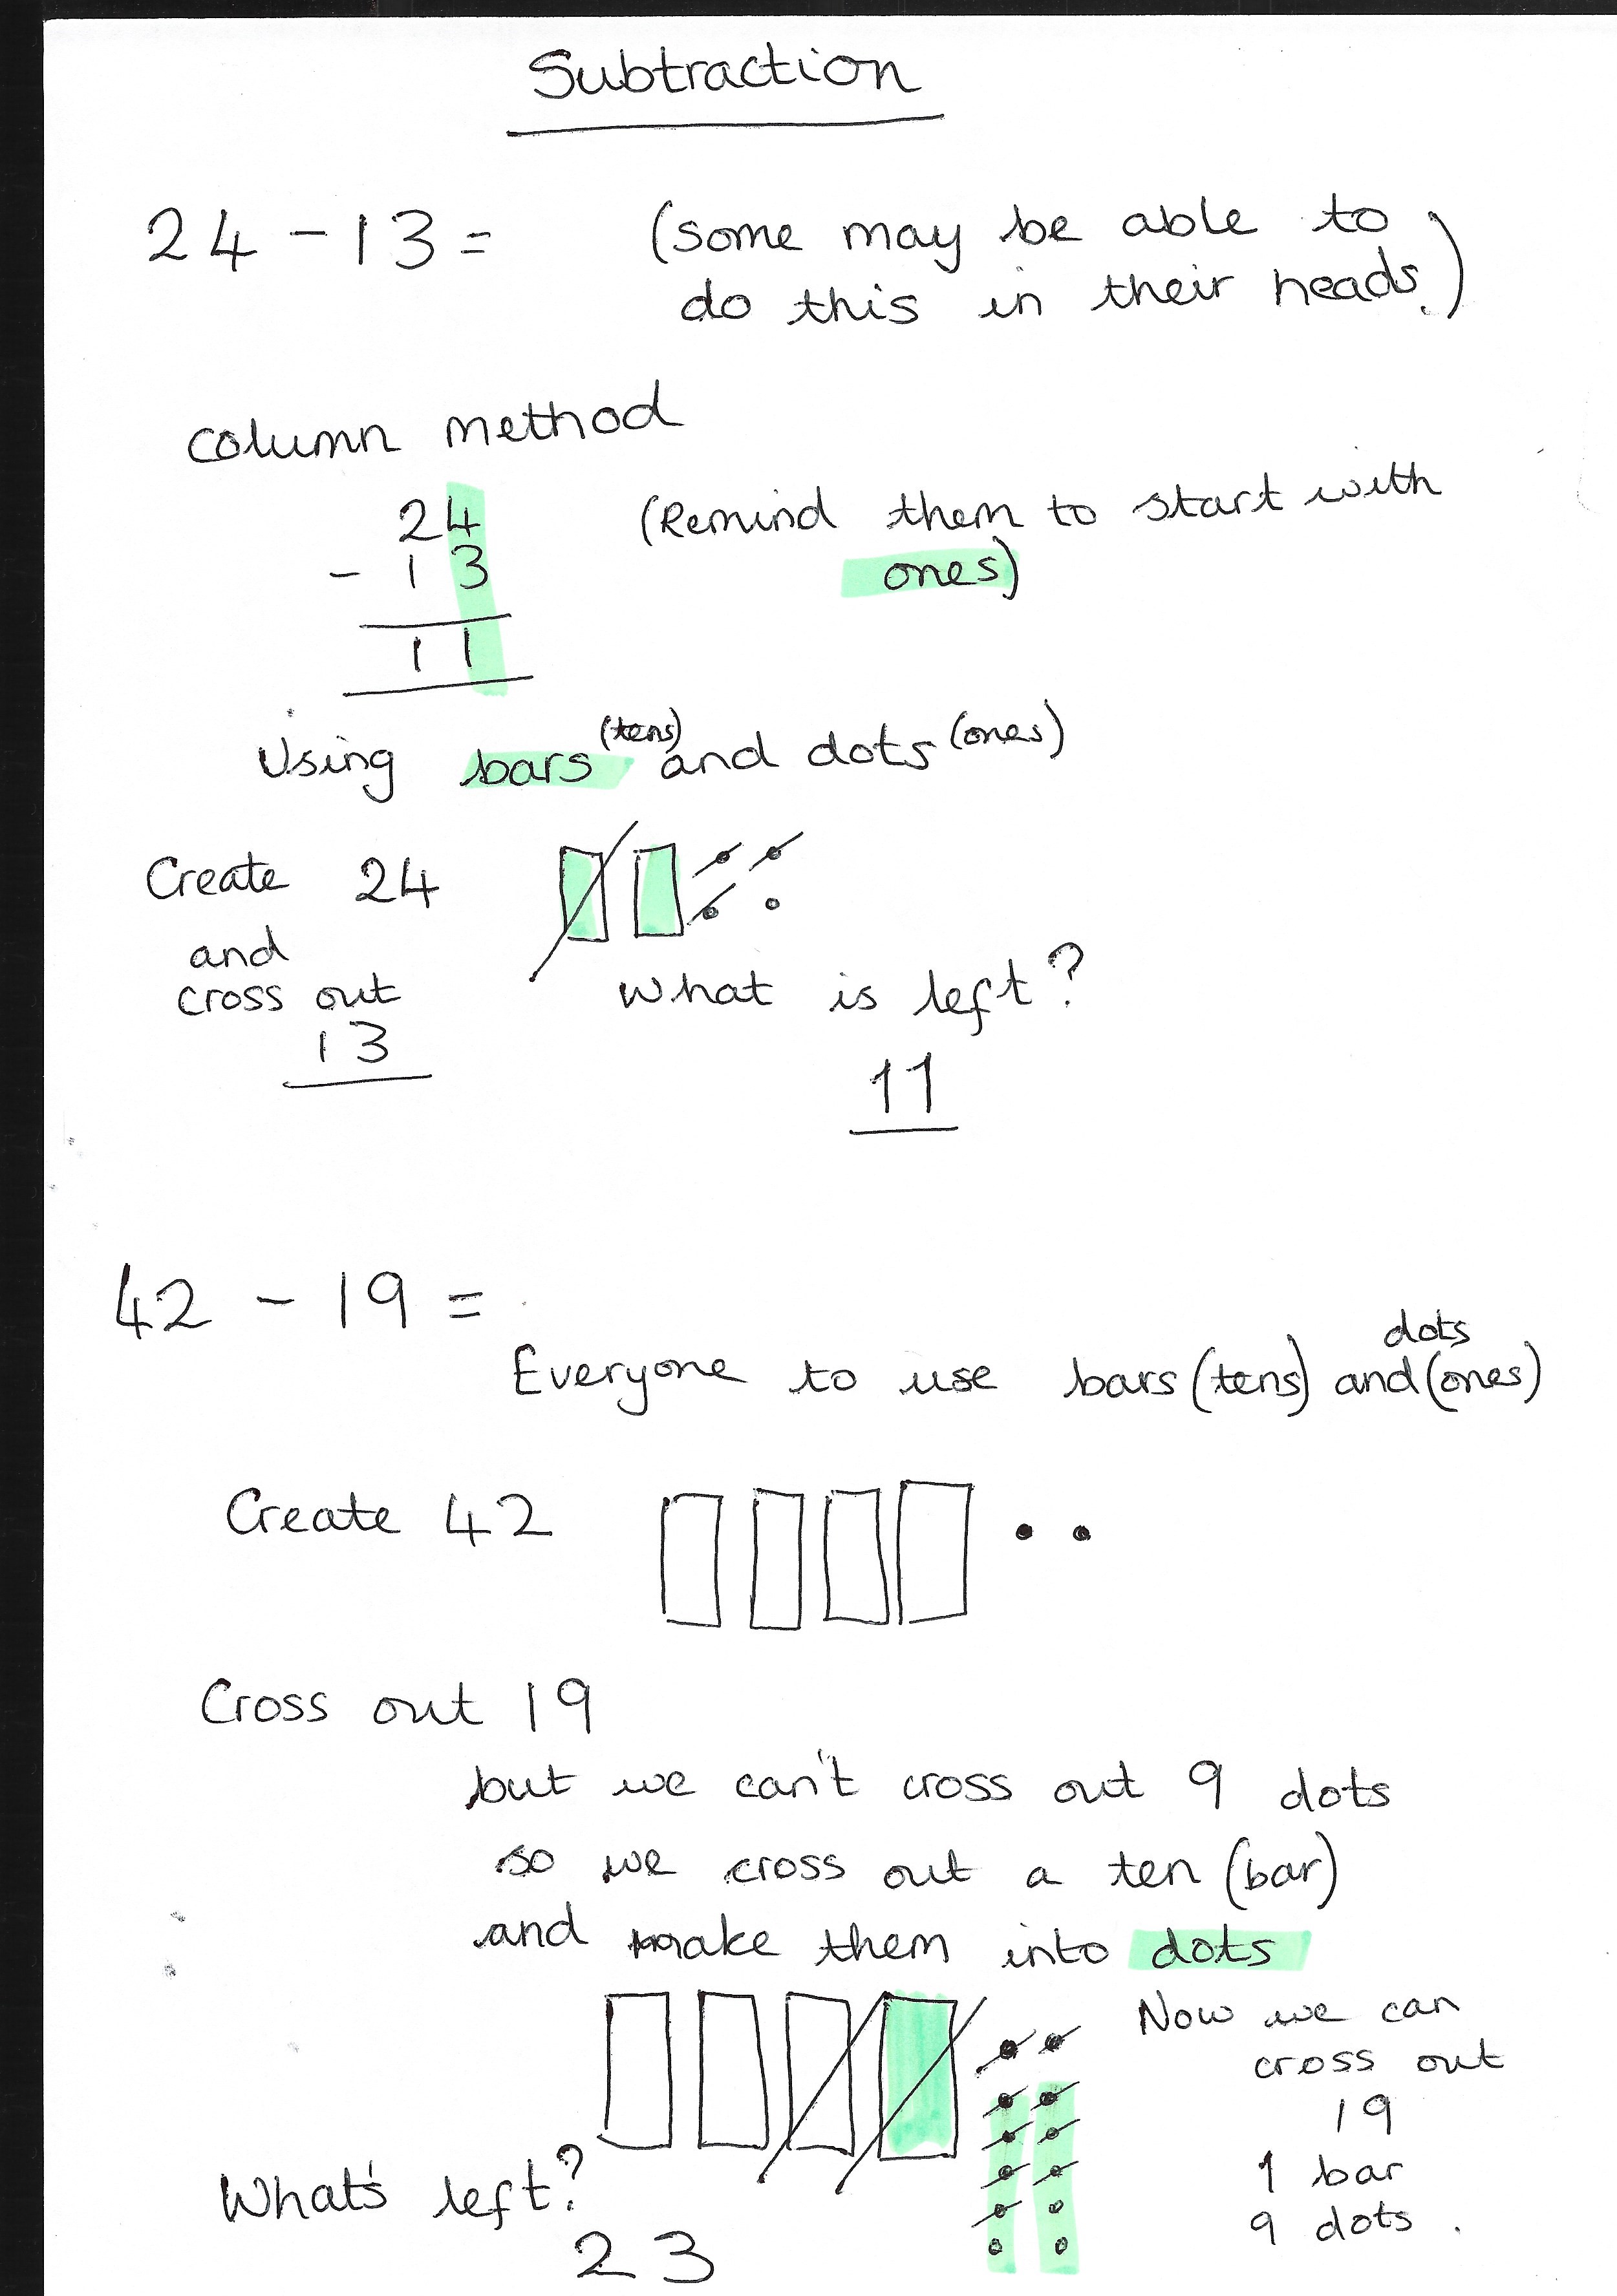 Subtraction
24 - 13 =
(some may be able to
do this in their heads.)
column method
24
- 13
11
(Remind them to start with
ones)
Using bars (tens) and dots (ones)
Create 24
and
cross out
13
What is left?
11
42 - 19 =
Everyone to use bars (tens) and dots (ones)
Create 42
Cross out 19
but we can't cross out 9 dots
so we cross out a ten (bar)
and make them into dots
Now we can
cross out
19
1 bar
9 dots.
What's left?
23